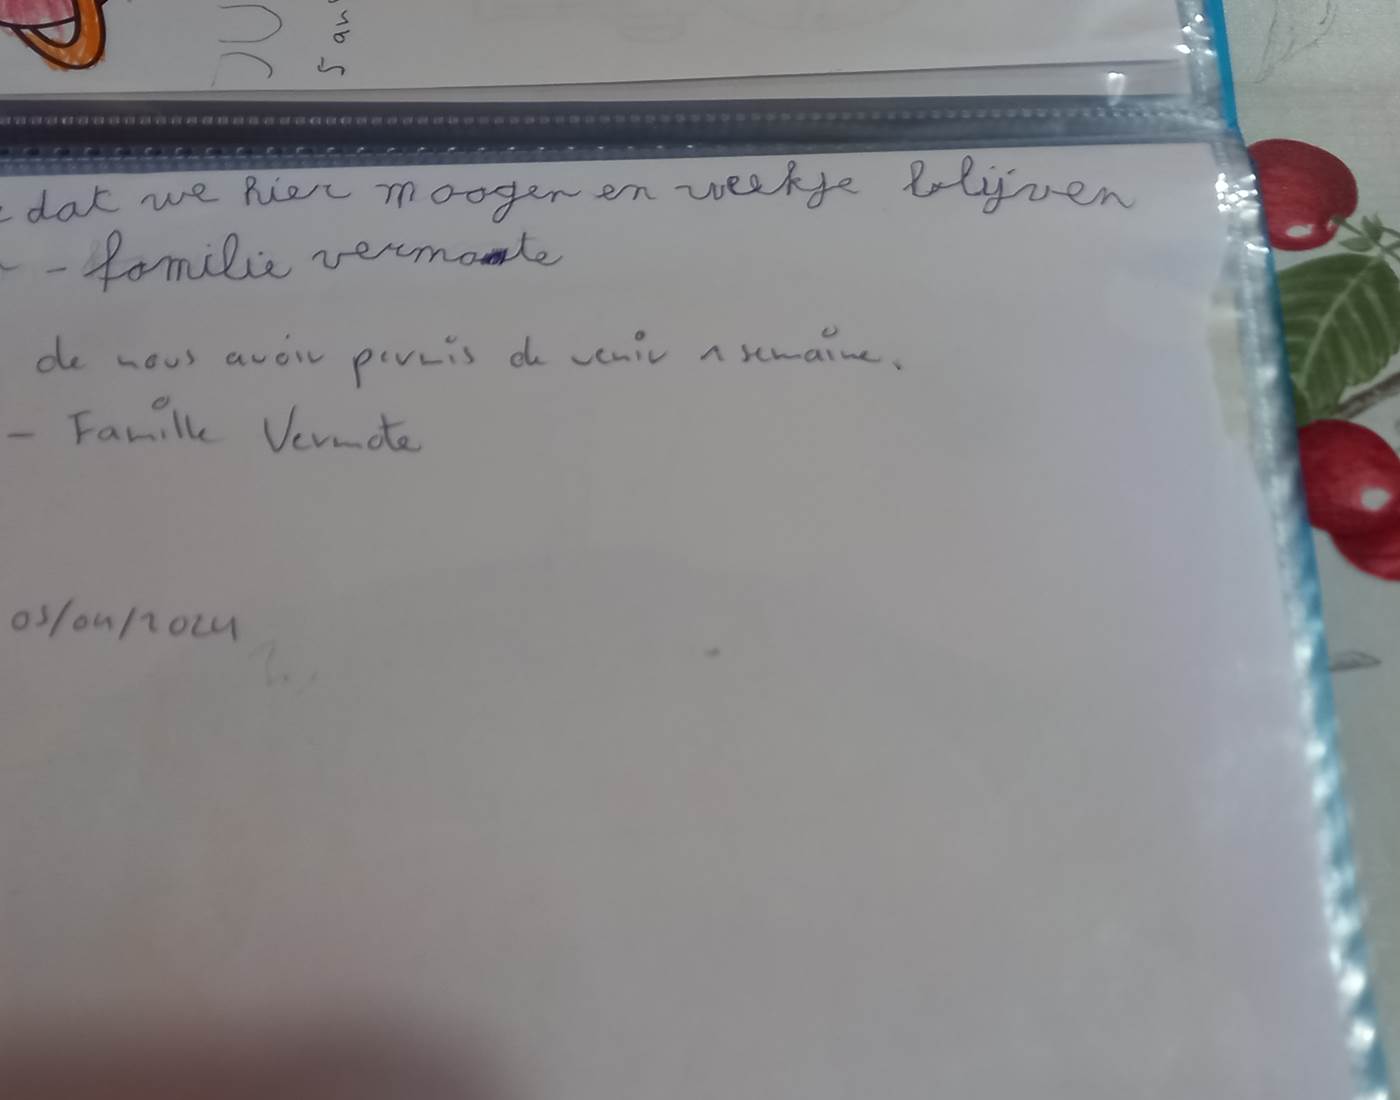 San
dat we hier moogen en weekje blijven
- familie vermote
de nous avoir permis de venir 1 semaine.
- Famille Vermote
03/04/2024